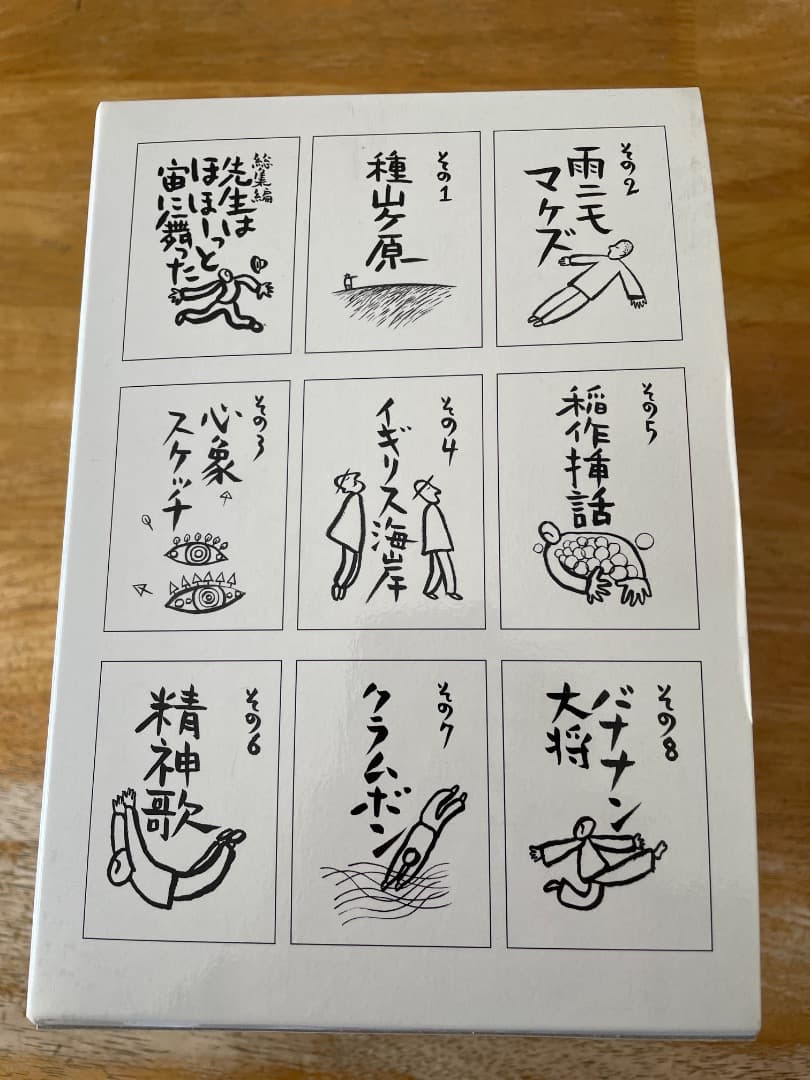 総集編
先生は
ほほーっと
宙に舞った
その1
種山ヶ原
その2
雨ニモ
マケズ
その3
心象
スケッチ
その4
イギリス海岸
その5
稲作挿話
その6
精神歌
その7
クラムボン
その8
バナナン
大将